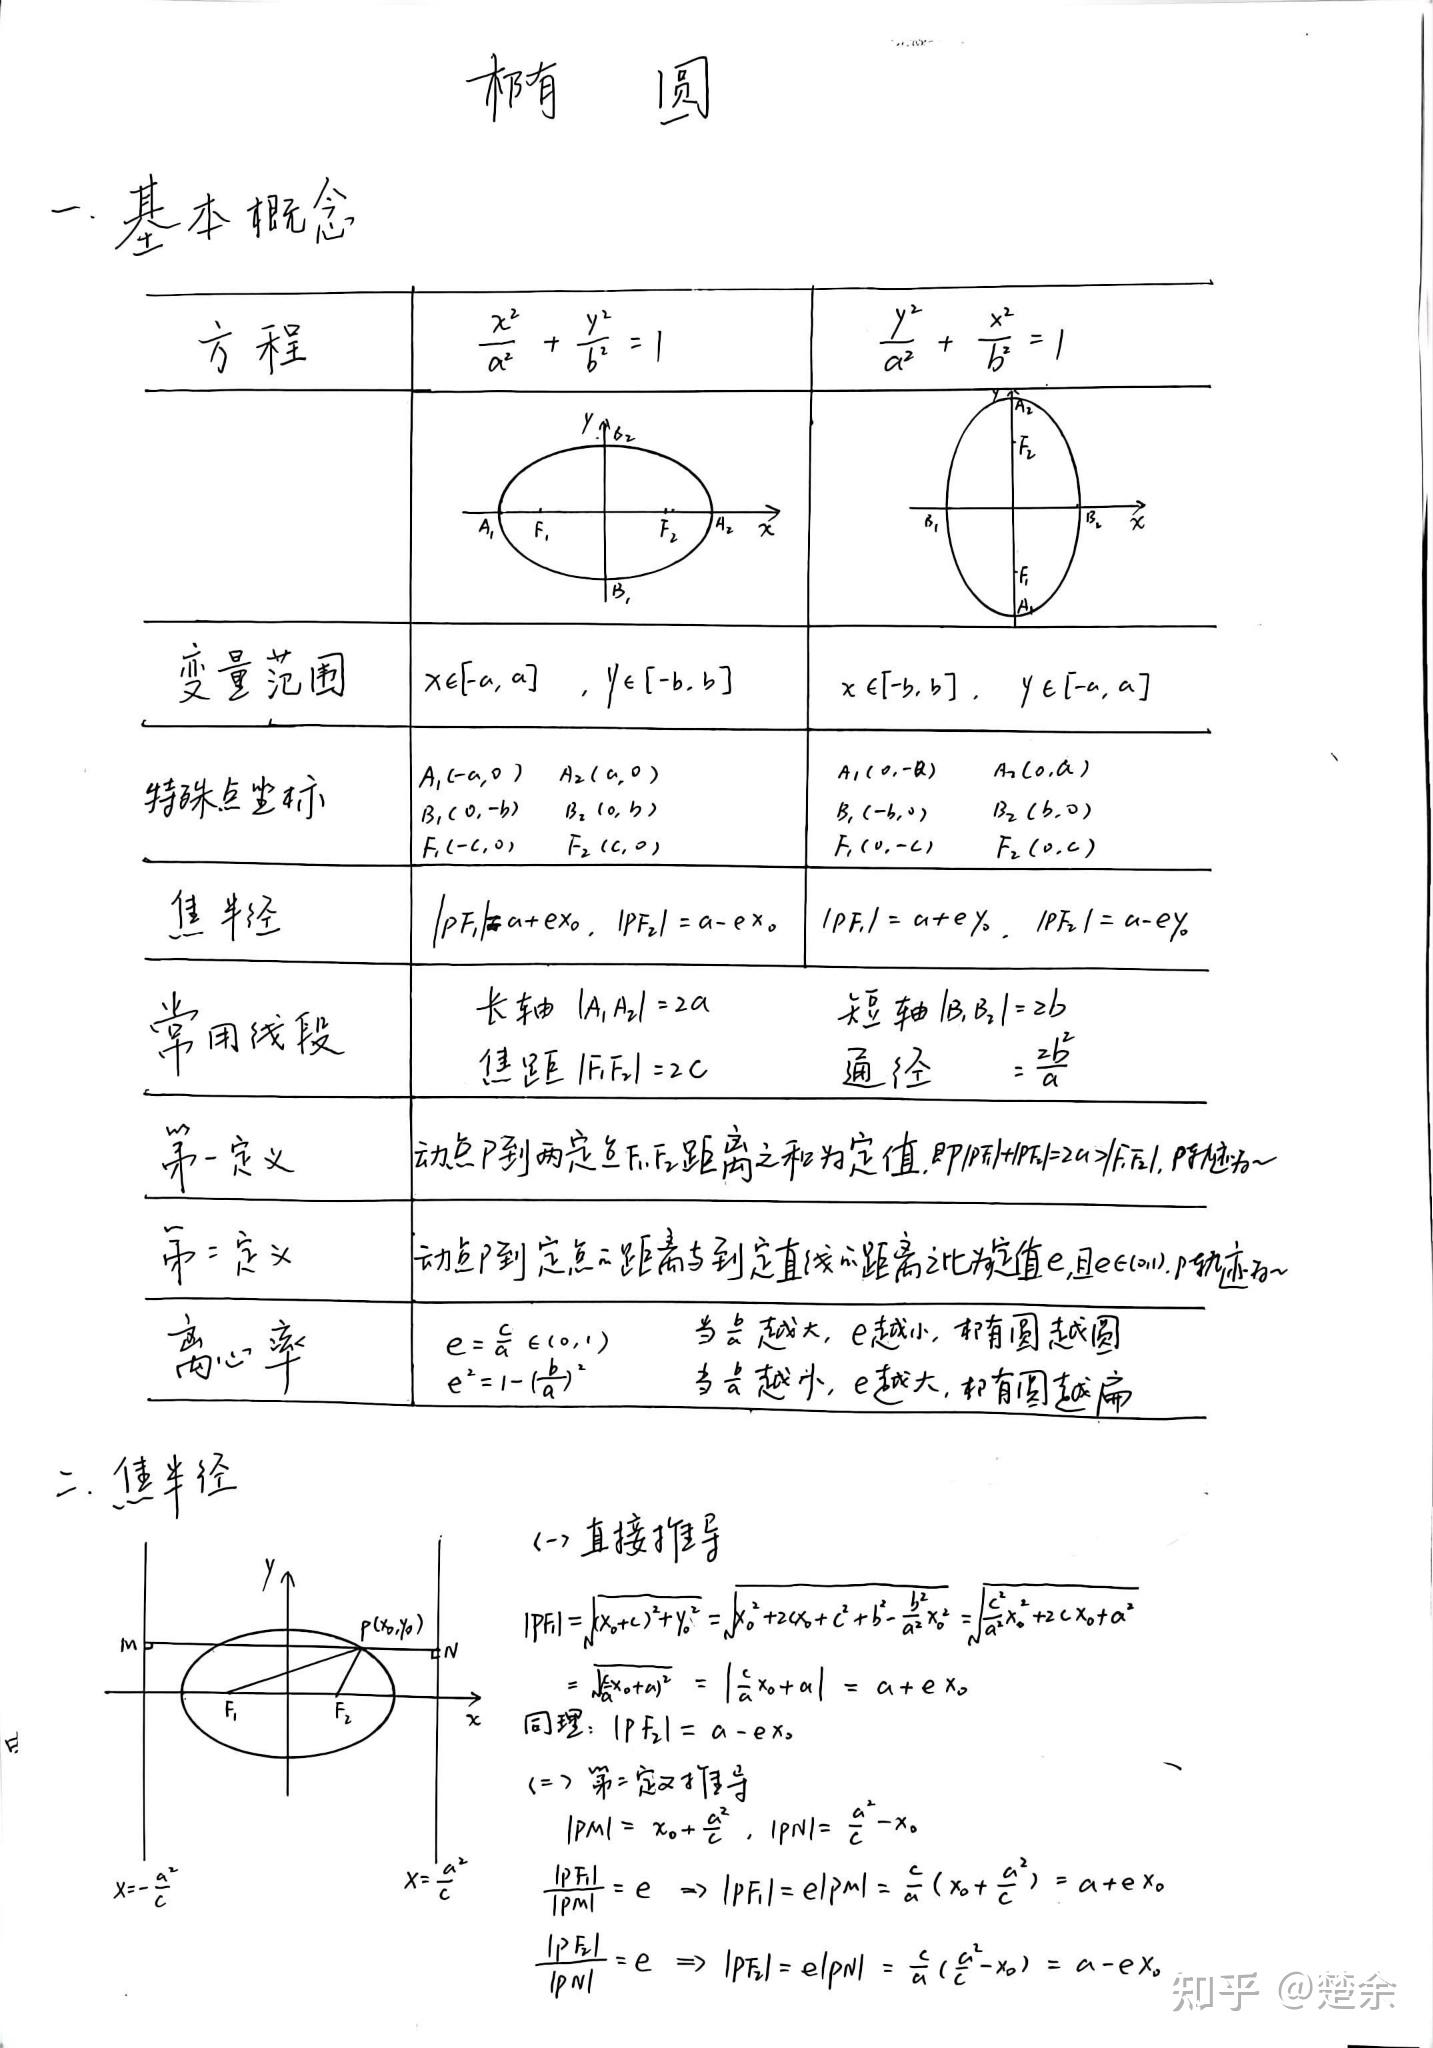 椭 圆
一. 基本概念
方程 x²/a² + y²/b² = 1 y²/a² + x²/b² = 1
y B₂ A₁ F₁ F₂ A₂ x B₁
y A₂ F₂ B₁ B₂ x F₁ A₁
变量范围 x∈[-a, a] , y∈[-b, b] x∈[-b, b] , y∈[-a, a]
特殊点坐标 A₁(-a,0) A₂(a,0) A₁(0,-a) A₂(0,a)
B₁(0,-b) B₂(0,b) B₁(-b,0) B₂(b,0)
F₁(-c,0) F₂(c,0) F₁(0,-c) F₂(0,c)
焦半径 |PF₁|=a+ex₀, |PF₂|=a-ex₀ |PF₁|=a+ey₀, |PF₂|=a-ey₀
常用线段 长轴 |A₁A₂|=2a 短轴 |B₁B₂|=2b
焦距 |F₁F₂|=2c 通径 =2b²/a
第一定义 动点P到两定点F₁,F₂距离之和为定值,即|PF₁|+|PF₂|=2a>|F₁F₂|, P轨迹为~
第二定义 动点P到定点的距离与到定直线的距离之比为定值e,且e∈(0,1). P轨迹为~
离心率 e=c/a∈(0,1) 当b/a越大, e越小, 椭圆越圆
e²=1-(b/a)² 当b/a越小, e越大, 椭圆越扁
二. 焦半径
(一) 直接推导
y M P(x₀,y₀) N F₁ F₂ x
x=-a²/c x=a²/c
|PF₁|=√((x₀+c)²+y₀²)=√(x₀²+2cx₀+c²+b²-b²/a²x₀²)=√(c²/a²x₀²+2cx₀+a²)
=√((c/a x₀+a)²) = |c/a x₀+a| = a+ex₀
同理: |PF₂|=a-ex₀
(二) 第二定义推导
|PM|=x₀+a²/c , |PN|=a²/c-x₀
|PF₁|/|PM|=e ⇒ |PF₁|=e|PM|=c/a(x₀+a²/c)=a+ex₀
|PF₂|/|PN|=e ⇒ |PF₂|=e|PN|=c/a(a²/c-x₀)=a-ex₀
知乎 @楚余